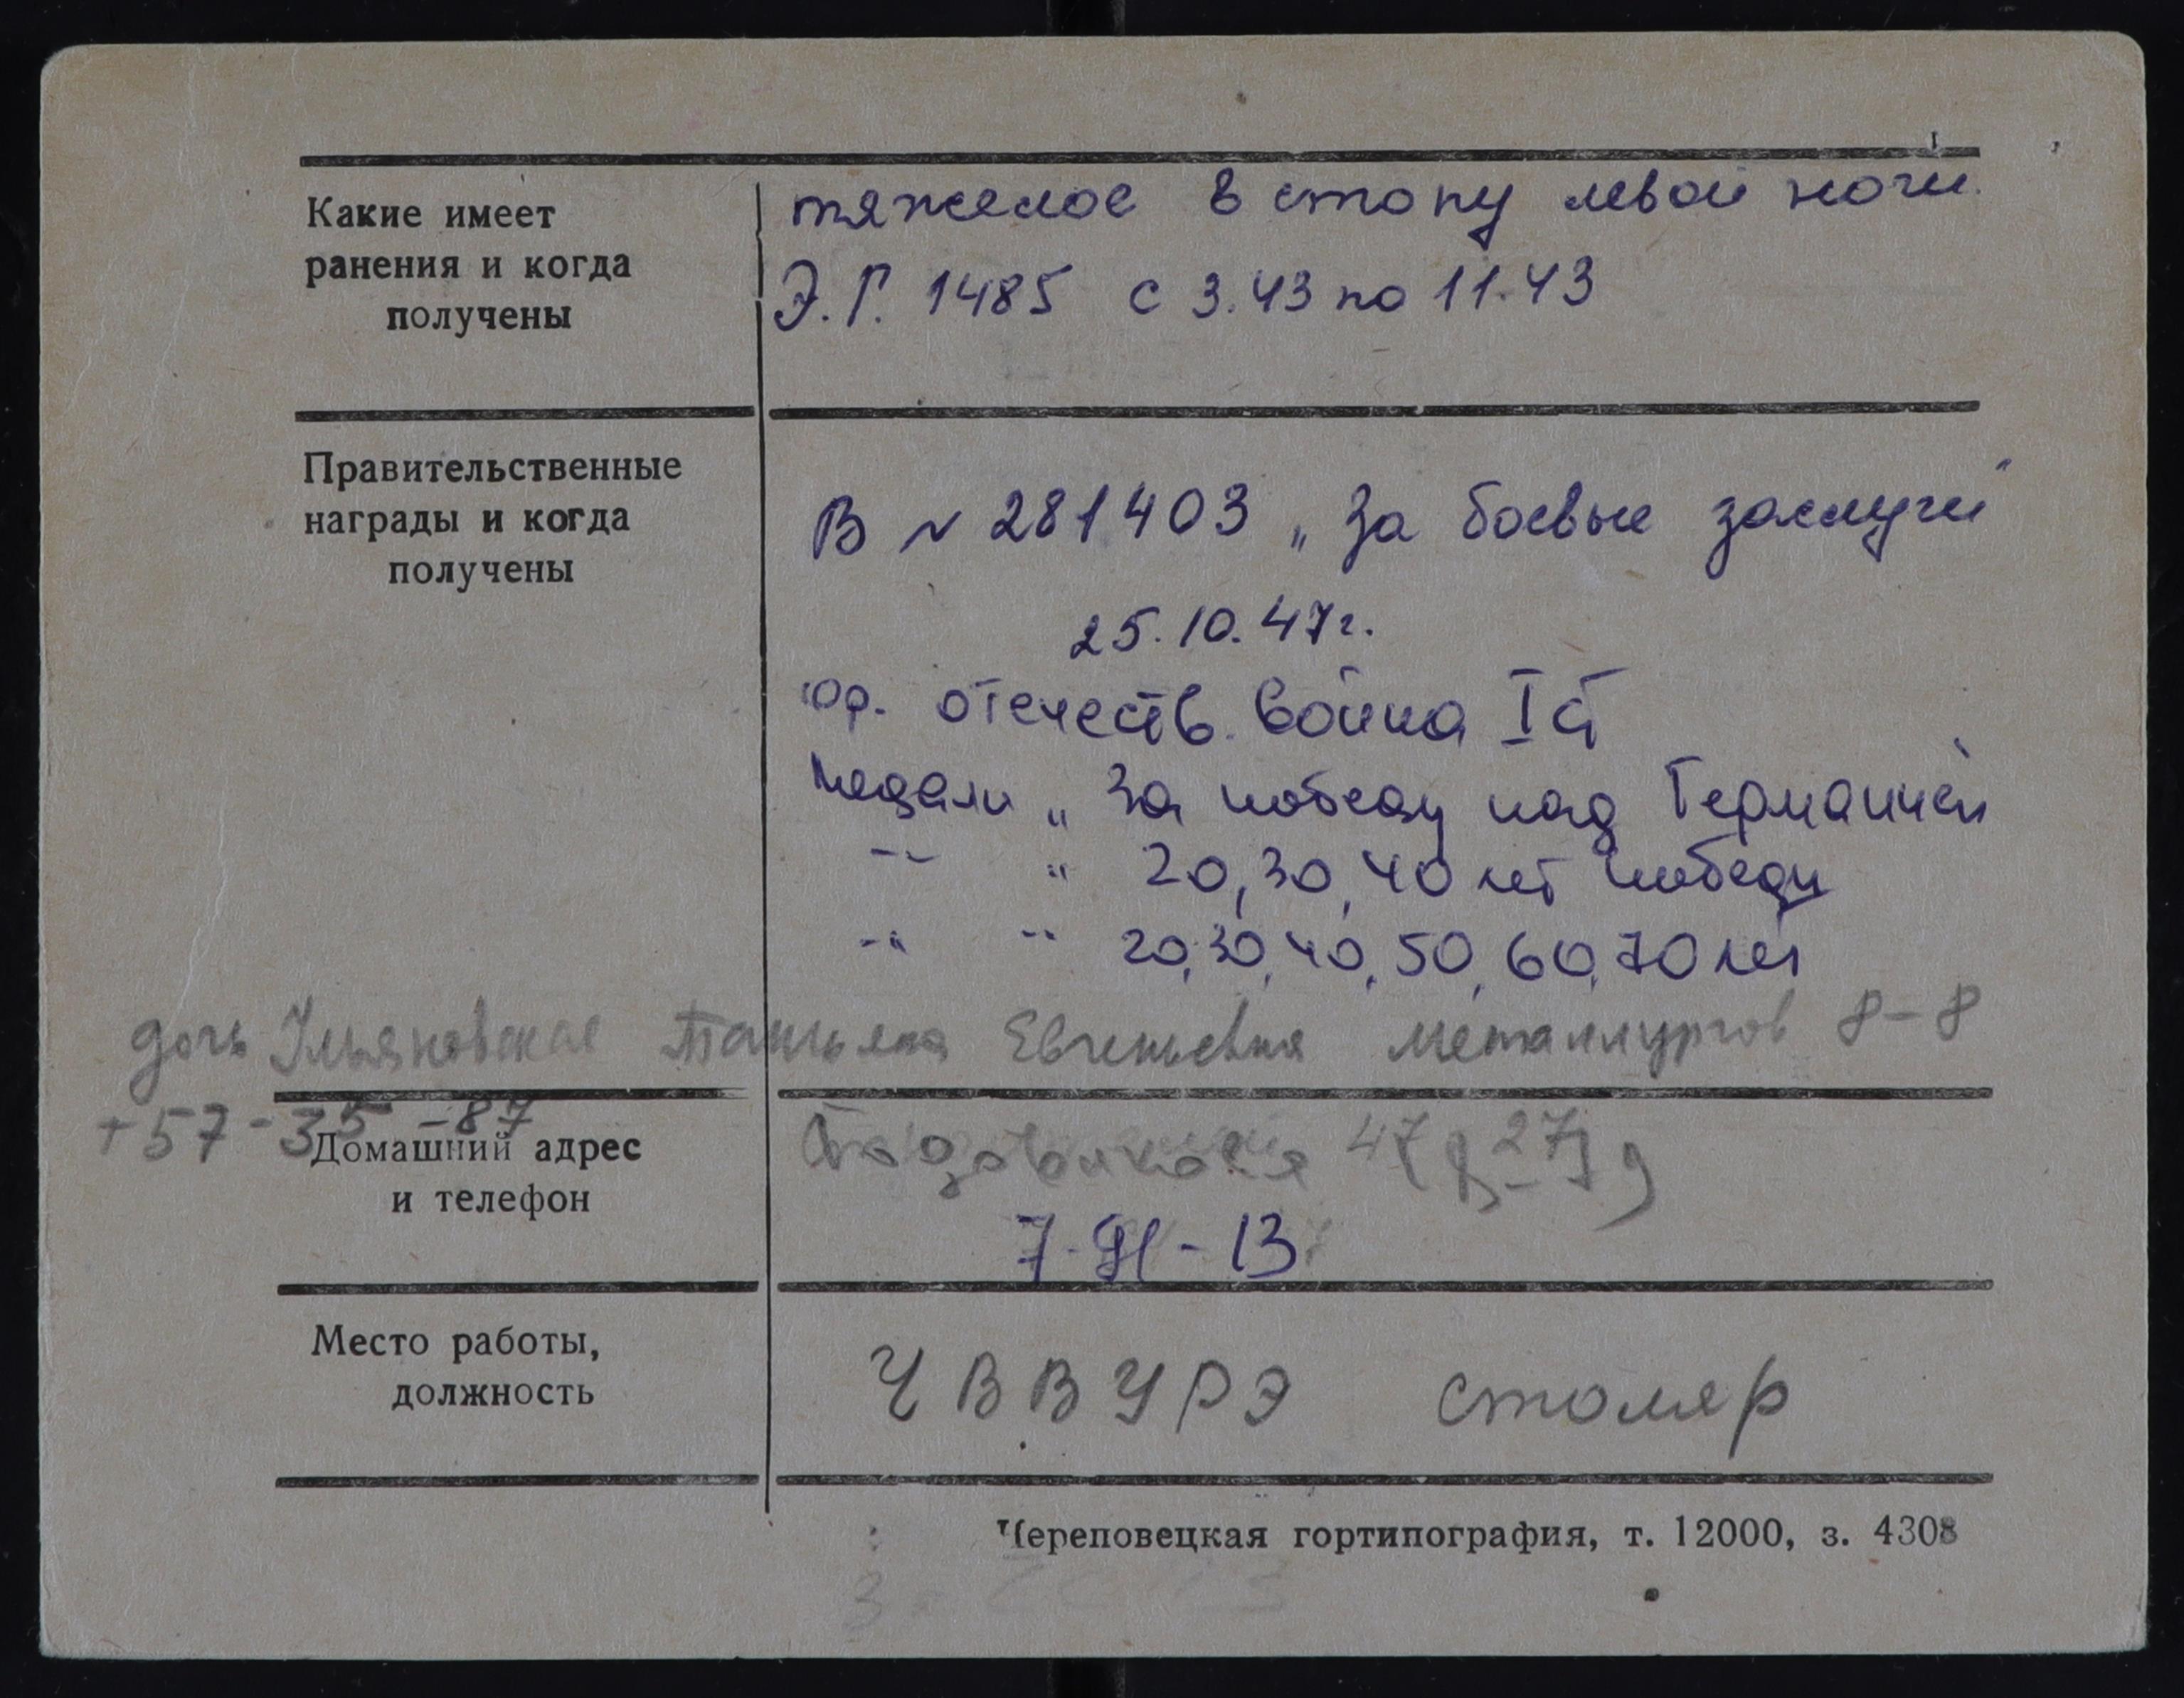 Какие имеет
ранения и когда
получены
тяжелое в стопу левой ноги.
Э.Г. 1485 с 3.43 по 11.43
Правительственные
награды и когда
получены
В № 281403 „За боевые заслуги"
25.10.47г.
ор. отечеств. война I ст
медали „За победу над Германией
-"- " 20, 30, 40 лет победы
-"- -"- 20, 30, 40, 50, 60, 70 лет
дочь Ульяновская Татьяна Евгеньевна Металлургов 8-8
т 57-35-87
Домашний адрес
и телефон
47 27
7-91-13
Место работы,
должность
ЧВВУРЭ столяр
Череповецкая гортипография, т. 12000, з. 4308